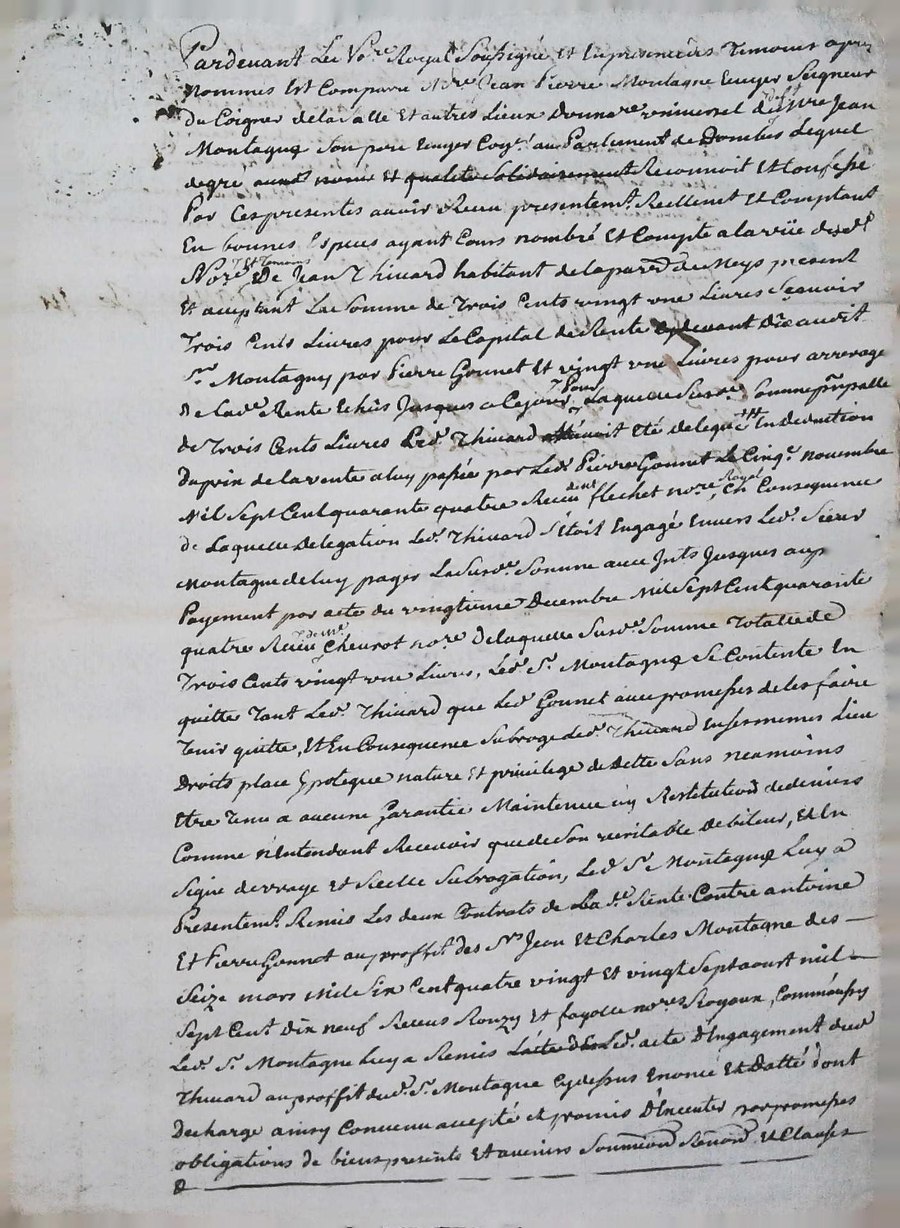 Pardevant Le No.re Royal Soussigné Et En presence des Temoins apres
nommes Est Comparu M.re Jean Pierre Montagne Ecuyer Seigneur
Du Coigner delaSalle Et autres Lieux Donna.re universel du deff.t S.r Jean
Montagne Son pere Ecuyer Con.er au Parlement de Dombes Lequel
degré Reconnoit Et Confesse
Par Ces presentes avoir Receu presentem.t Reellemet Et Comptant
En bonnes Especes ayant Cours nombré Et Compté a la vüe dud.t
No.re Et Temoins De Jean Thivard habitant de la par.e de Meys present
Et acceptant La Somme de Trois Cents vingt une Livres Scavoir
Trois Cents Livres pour Le Capital de Rente audit
S.r Montagne par Pierre Gonnet Et vingt une Livres pour arrerage
de lad.e Rente Echus Jusques a Cejour, Laquelle Susd.e Somme prīpalle
de Trois Cents Livres Led. Thivard avoit Eté delegué En deduction
Du prix de la vente a luy passée par Led. Pierre Gonnet Le Cinq.e novembre
Mil Sept Cent quarante quatre Receu flechet no.re Royal, En Consequence
de Laquelle Delegation Led. Thivard S'étoit Engagé Envers Led. Sieur
Montagne de luy payer La Susd.e Somme avec Jnts Jusques aux
Payement par acte du vingtieme Decembre Mil Sept Cent quarante
quatre Receu Chevrot no.re De laquelle Susd.e Somme Totalle de
Trois Cents vingt une Livres, Led. S.r Montagne Se Contente En
quitte Tant Led. Thivard que Led. Gonnet avec promesses de les faire
Tenir quitte, Et En Consequence Subroge Led. Thivard En Ses memes Lieu
Droits place hypoteque nature Et privilege de Dette Sans neamoins
Etre Tenu a aucune Garantie Maintenue ny Restitution de deniers
Comme n'Entendant Recevoir que de Son veritable Debiteur, Et En
Signe de vraye Et Reelle Subrogation, Led. S.r Montagne Luy a
Presentem.t Remis Les deux Contrats de La d.e Rente Contre antoine
Et Pierre Gonnot au proffit des S.rs Jean Et Charles Montagne des
Seize mars Mil Six Cent quatre vingt Et vingt Sept aoust mil
Sept Cent Dix neuf Receus Ronzy Et fayolle no.res Royaux, Comm'aussy
Led. S.r Montagne Luy a Remis Led. acte D'Engagement dud.
Thivard au proffit dud. S.r Montagne Cydessus Enoncé Et Datté dont
Decharge ainsy Convenu accepté Et promis D'Executer par promesses
obligations de biens presents Et avenirs Soumissions Renon.ons Et Clauses